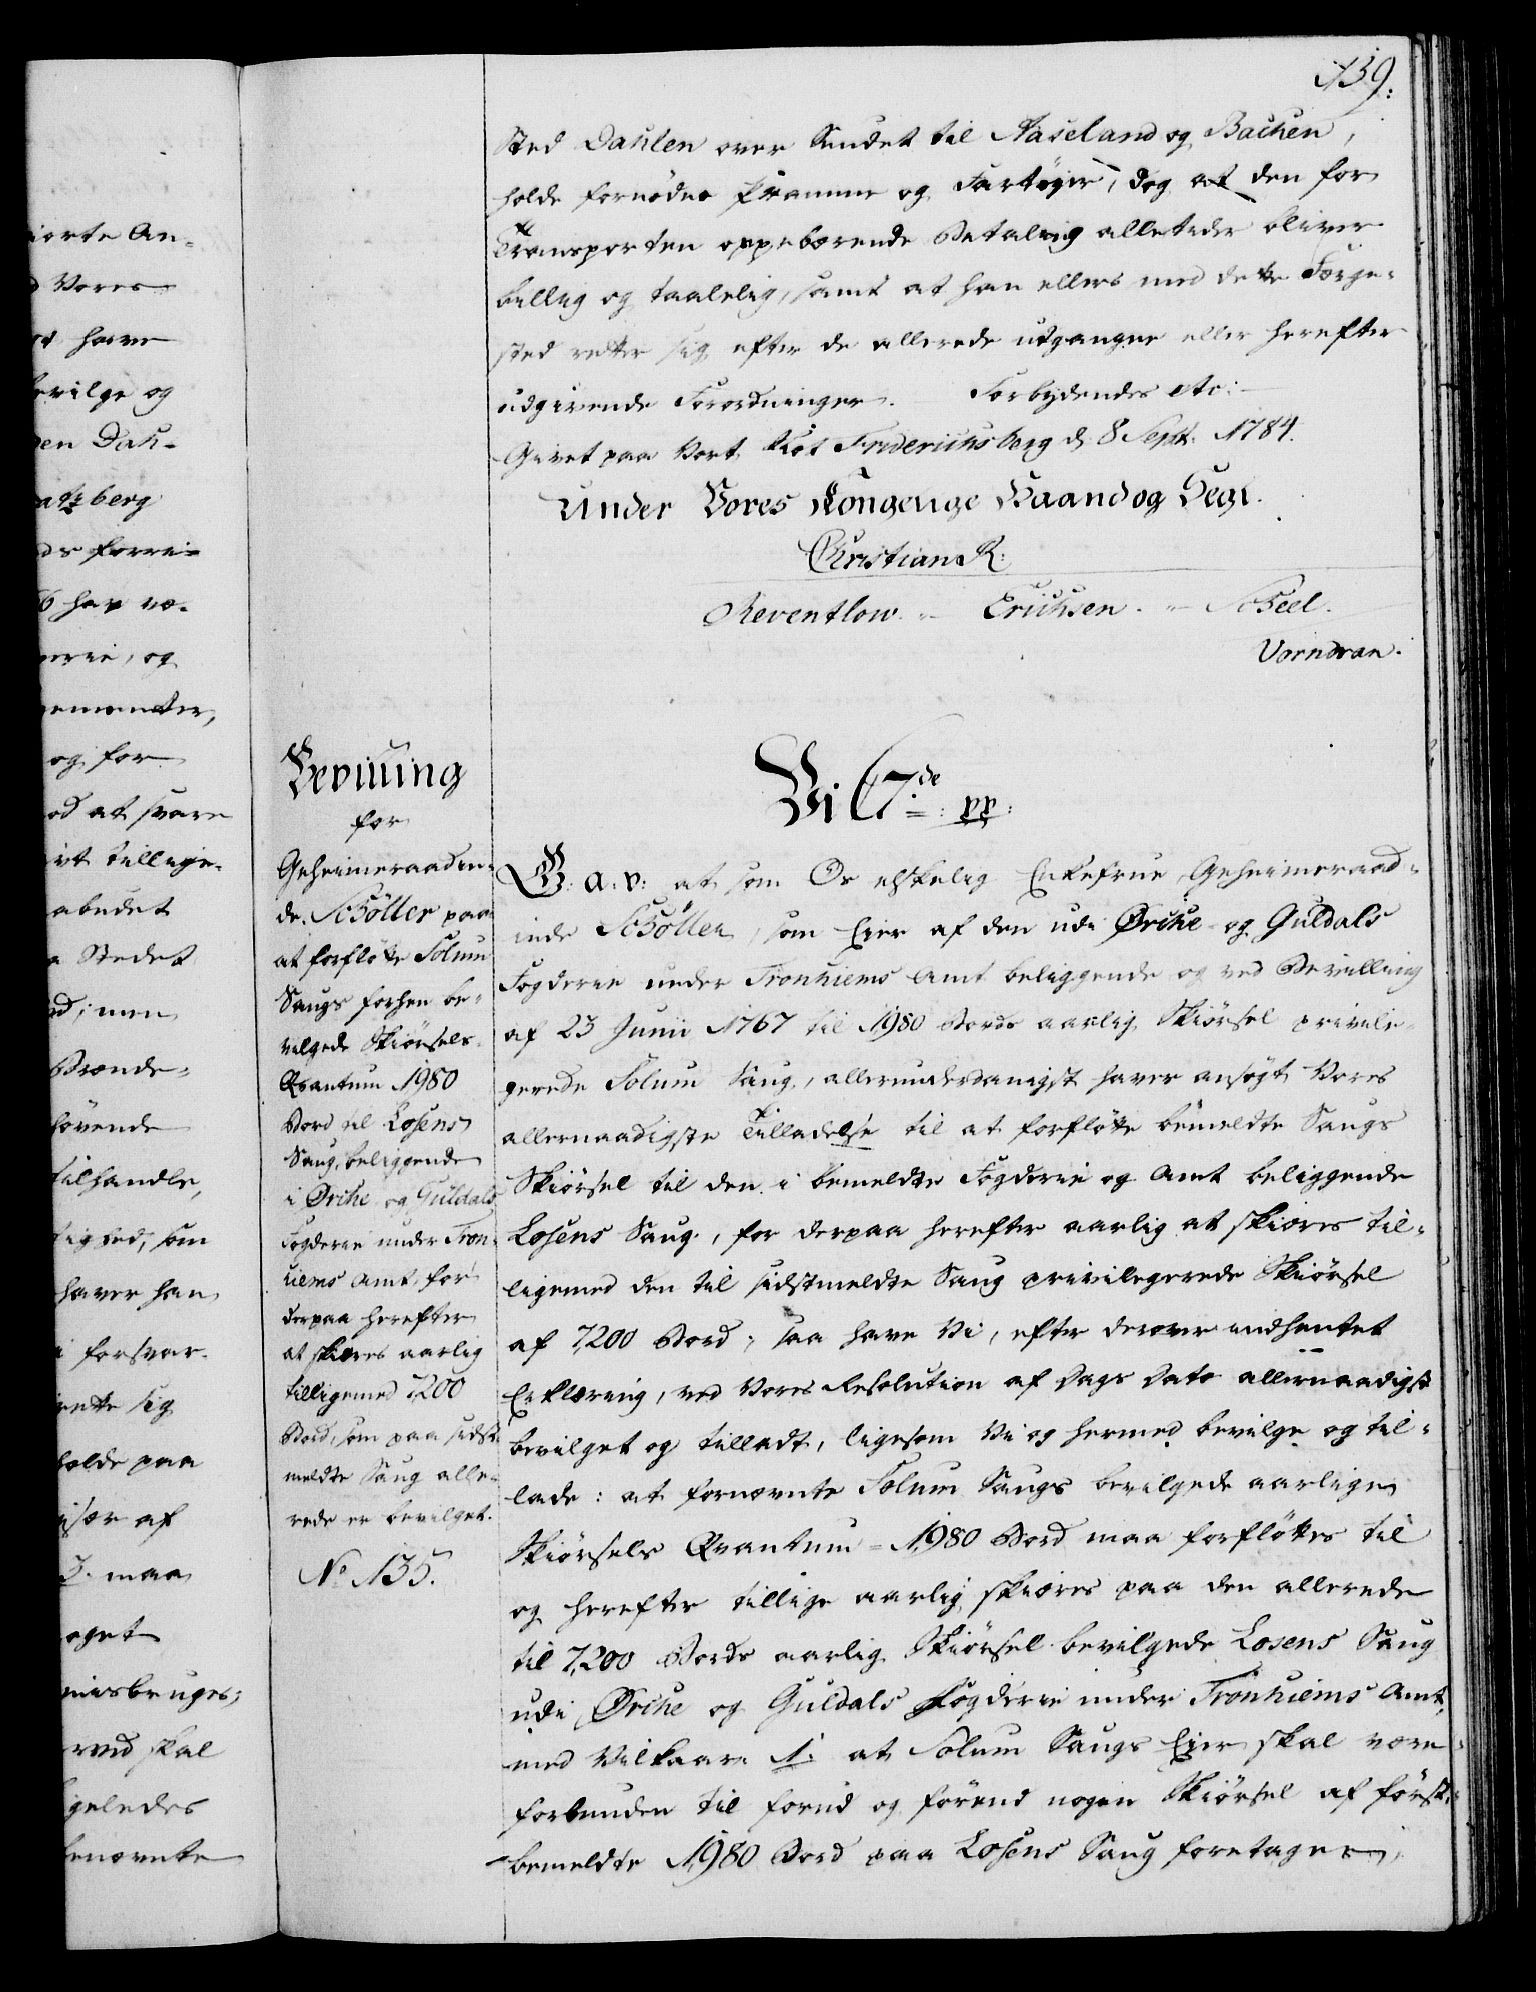 139.
Sted Dahlen over Sundet til Aaseland og Bachen,
holde fornödne Pramme og Fartøyer, dog at den for
Transporten oppebærende Betaling alletider bliver
billig og taalelig, samt at han ellers med dette Færge-
sted retter sig efter de allerede udgangne eller herefter
udgivende Forordninger. Forbydendes etc:
Givet paa Vort Slot Friderichsberg d. 8 Septr. 1784.
Under Vores Kongelige Haand og Segl.
Christian R:
Reventlow. Erichsen. Scheel.
Vorndran.
Bevilling
for
Geheimeraadin-
de Schöller paa
at forflötte Solum
Saugs forhen be-
vilgede Skiörsels-
Qvantum 1980
Bord til Losens
Saug, beliggende
i Ørche og Guldals
Fogderie under Tron-
hiems Amt, for
derpaa herefter
at skiæres aarlig
tilligemed 7,200
Bord, som paa sidst-
meldte Saug alle-
rede er bevilget.
No 135.
Vi C 7de pp:
G: a: v: at som Os elskelig Enkefrue Geheimeraad-
inde Schöller, som Eier af den udi Ørche og Guldals
Fogderie under Tronhiems Amt beliggende og ved Bevilling
af 23 Junii 1767 til 1980 Bords aarlig Skiörsel privile-
gerede Solum Saug, allerunderdanigst haver ansøgt Vores
allernaadigste Tilladelse til at forflötte bemeldte Saugs
Skiörsel til den i bemeldte Fogderie og Amt beliggende
Losens Saug, for derpaa herefter aarlig at skiæres til-
ligemed den til sidstmeldte Saug privilegerede Skiörsel
af 7,200 Bord; saa have Vi, efter derover indhentet
Erklæring, ved Vores Resolution af Dags Dato allernaadigst
bevilget og tilladt, ligesom Vi og hermed bevilge og til-
lade: at fornævnte Solum Saugs bevilgede aarlige
Skiörsels Qvantum 1980 Bord maa forflöttes til
og herefter tillige aarlig skiæres paa den allerede
til 7,200 Bords aarlig Skiörsel bevilgede Losens Saug
udi Ørche og Guldals Fogderie under Tronhiems Amt,
med Vilkaar: 1: at Solum Saugs Eier skal være
forbunden til forud og förend nogen Skiörsel af först-
bemeldte 1980 Bord paa Losens Saug foretages,